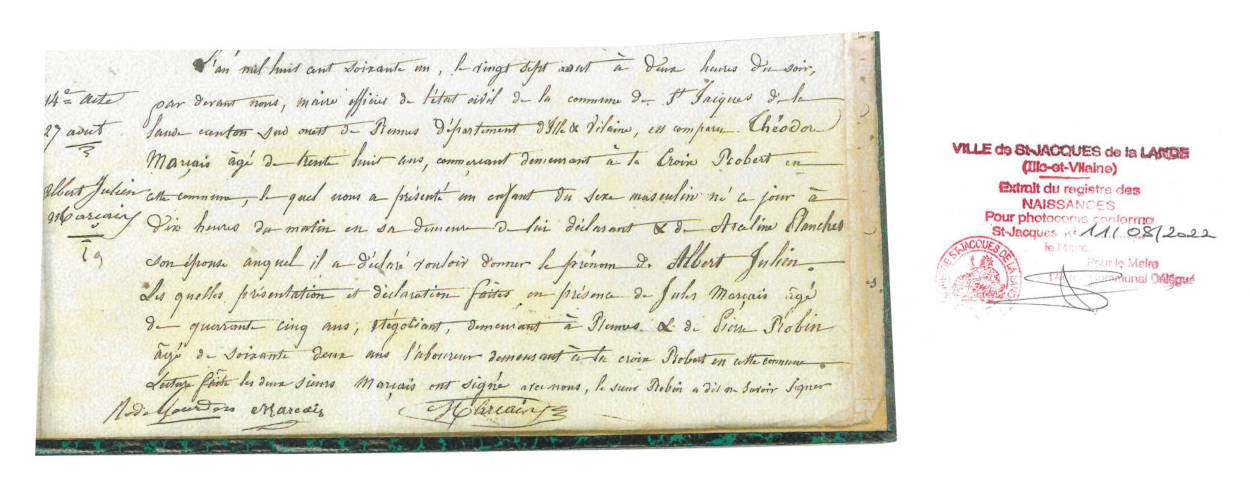 L'an mil huit cent soixante un, le vingt sept aout à Deux heures Du soir,
14e acte
par devant nous, maire officier de l'état civil de la commune de St Jacques de la
27 aout
lande canton sud ouest de Rennes Département D'Ille & Vilaine, est comparu Théodore
Marçais âgé de trente huit ans, commercant demeurant à la Croix Robert en
Albert Julien
Marçais
cette commune, le quel nous a présenté un enfant du sexe masculin né ce jour à
Dix heures du matin en sa demeure de lui déclarant & de Asceline Planches
son épouse auquel il a déclaré vouloir donner le prénom de Albert Julien.
Les quelles présentation et déclaration faites en présence de Jules Marçais âgé
de quarante cinq ans, Négociant, demeurant à Rennes & de Pierre Robin
âgé de soixante deux ans laboureur demeurant à la croix Robert en cette commune.
Lecture faite les deux sieurs Marçais ont signé avec nous, le sieur Robin a dit ne savoir signer
Marcais
Marcais
VILLE de St-JACQUES de la LANDE
(Ille-et-Vilaine)
Extrait du registre des
NAISSANCES
Pour photocopie conforme
St-Jacques, le 11/08/2022
le Maire
Pour le Maire
Communal Délégué